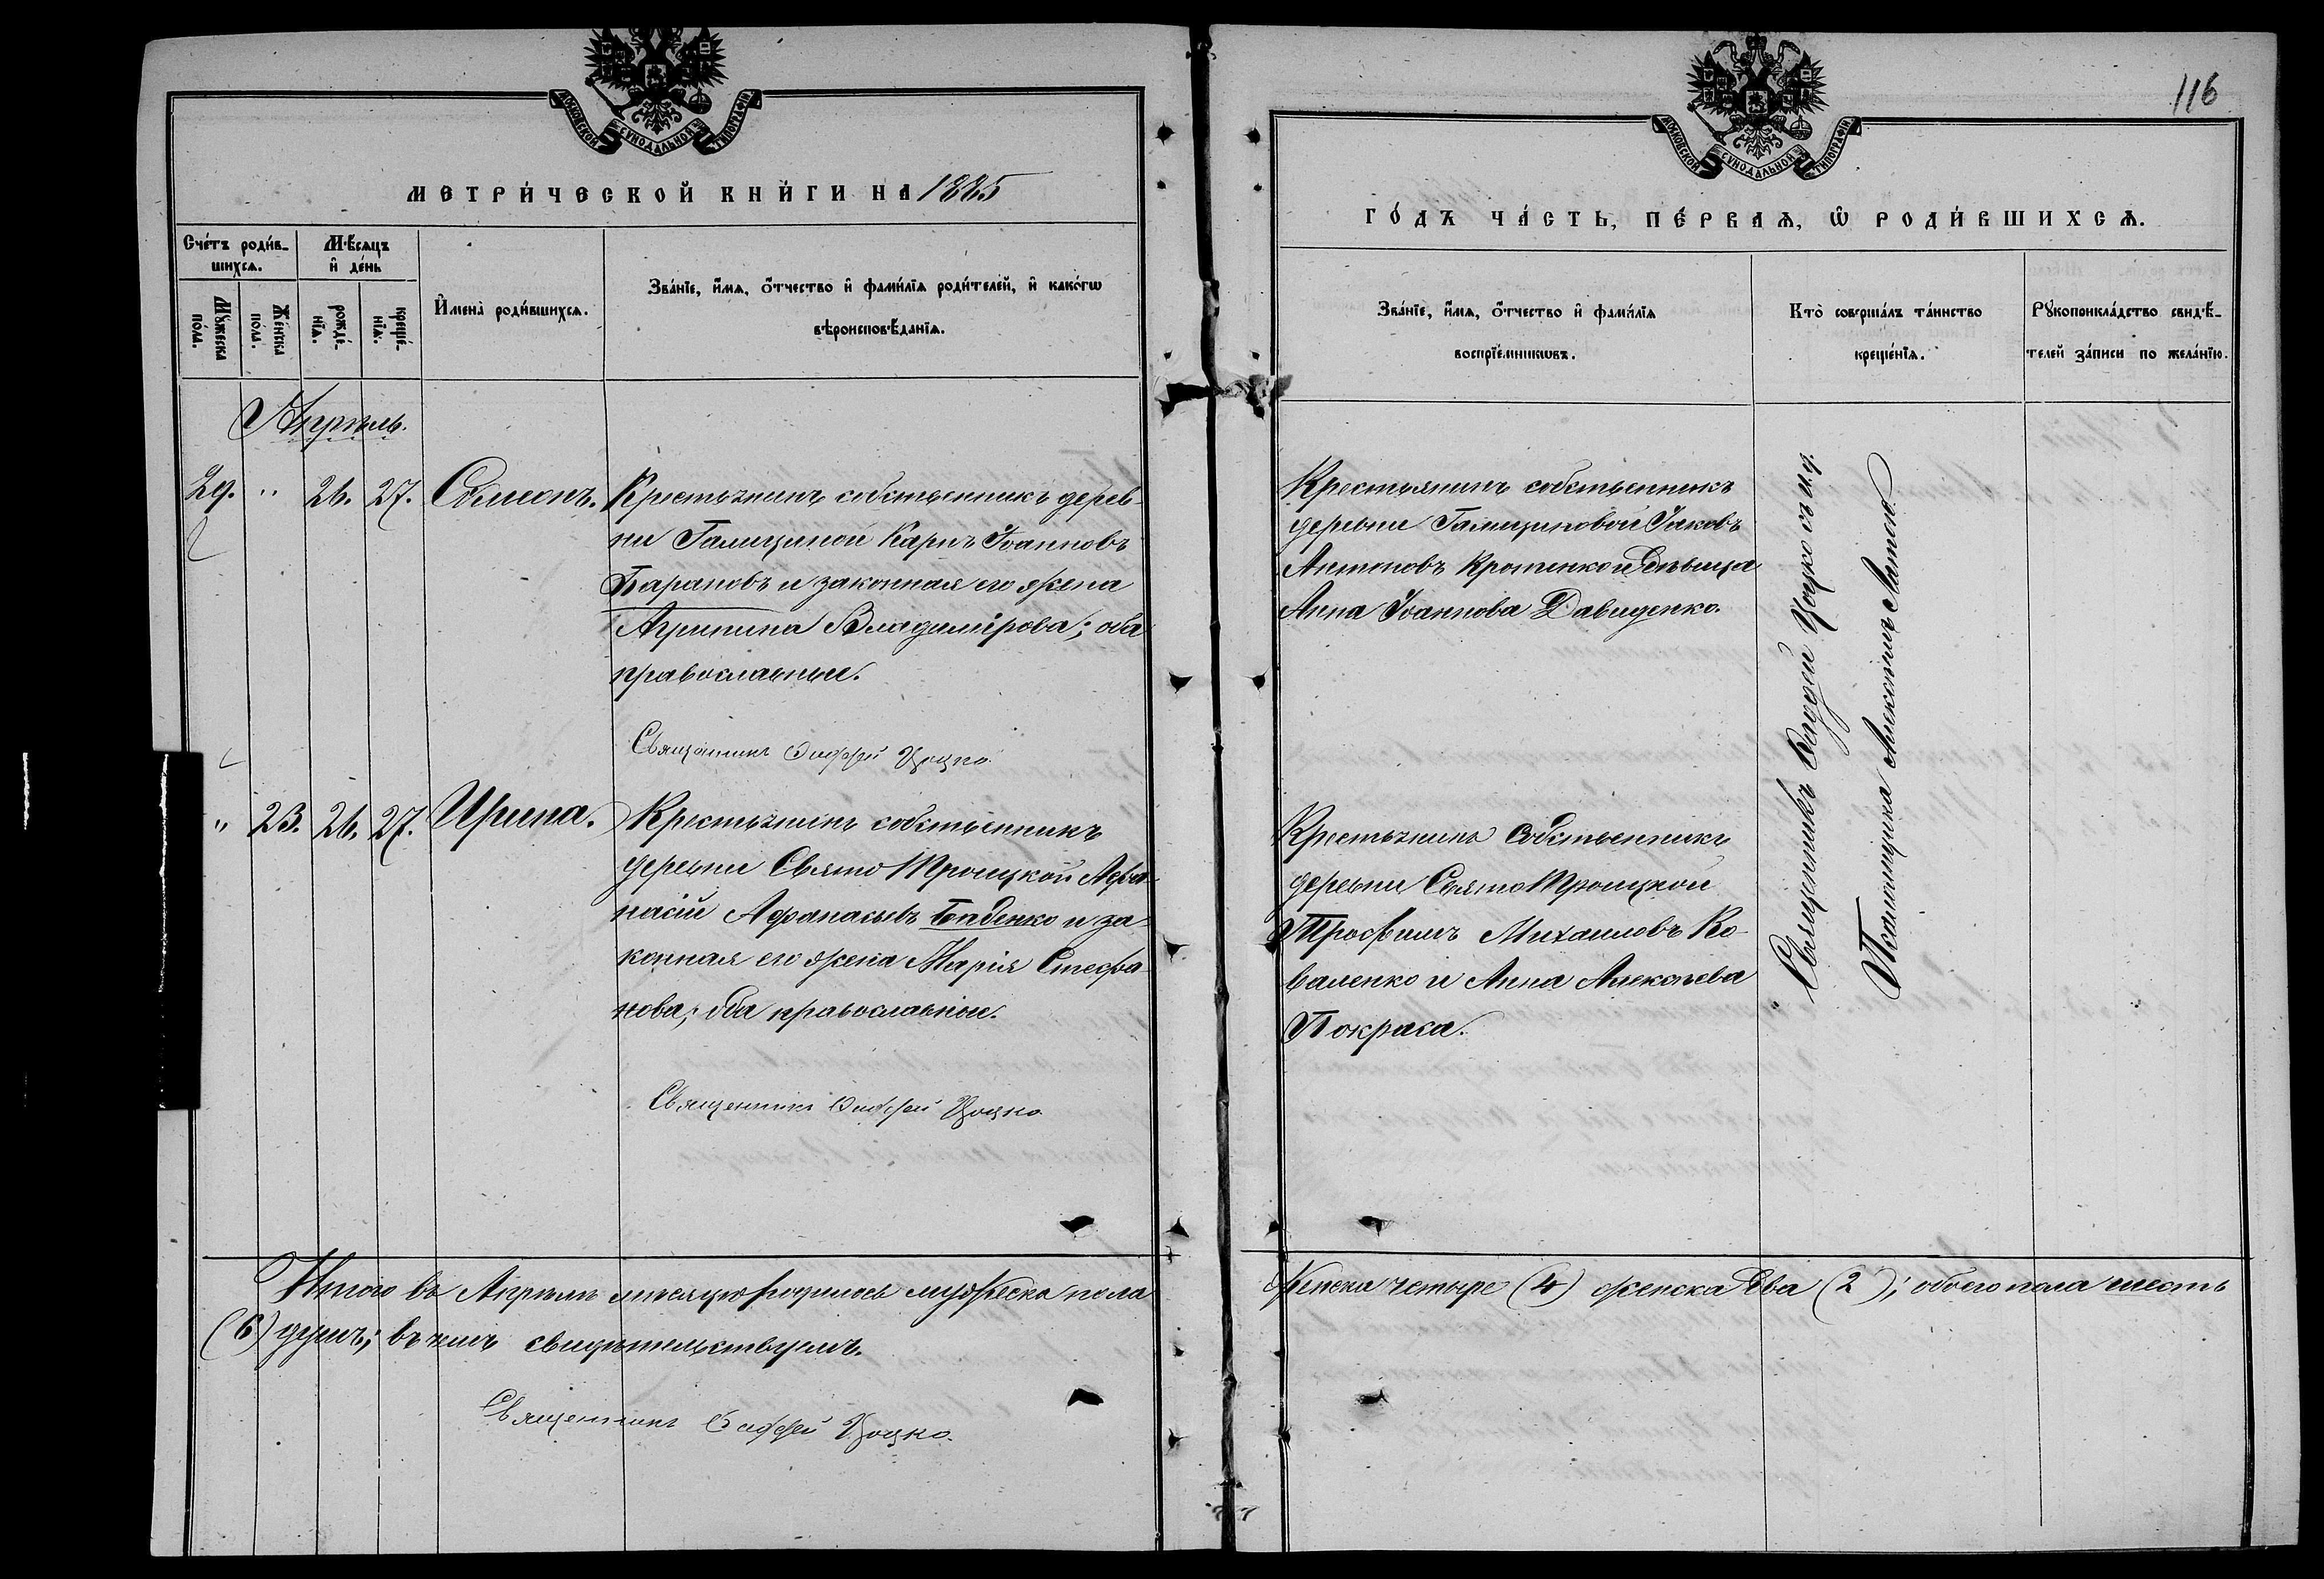 МОСКОВСКОЙ СУНОДАЛЬНОЙ ТИПОГРАФІИ
МЕТРИ́ЧЕСКОЙ КНИ́ГИ НА 1885
Сче́тъ роди́в-
шихсѧ.
Мѣ́сѧцъ
и҆ де́нь
Мꙋ́жеска
по́ла.
Же́нска
по́ла.
рожде́-
нїѧ.
креще́-
нїѧ.
И҆мена̀ роди́вшихсѧ.
Зва́нїе, и҆́мѧ, ѻ҆́тчество и҆ фамѝлїѧ роди́телей, и҆ како́гѡ
вѣроисповѣ́данїѧ.
Апрѣль.
29. " 26. 27. Симеонъ.
Крестьянинъ собственникъ дерев-
ни Галициной Карпъ Іоанновъ
Барановъ и законная его жена
Агрипина Владимірова; оба
православные.
Священникъ Цоцко.
" 23. 26. 27. Ирина.
Крестьянинъ собственникъ
деревни Свято Троицкой Афа-
насій Афанасьевъ Бабенко и за-
конная его жена Марія Стефа-
нова; оба православные.
Священникъ Цоцко.
Итого въ Апрѣлѣ мѣсяцѣ родилось мужеска пола
(6) душъ; въ чемъ свидѣтельствуемъ.
Священникъ Цоцко.
116
МОСКОВСКОЙ СУНОДАЛЬНОЙ ТИПОГРАФІИ
ГО́ДЪ ЧА́СТЬ, ПЕ́РВАѦ, Ѡ҆ РОДИ́ВШИХСѦ.
Зва́нїе, и҆́мѧ, ѻ҆́тчество и҆ фамѝлїѧ
воспрїе́мникѡвъ.
Кто̀ соверша́лъ та́инство
креще́нїѧ.
Рꙋкоприкла́дство свидѣ́-
телей за́писи по жела́нїю.
Крестьянинъ собственникъ
деревни Галициновой Іаковъ
Антоновъ и дѣвица
Анна Іоаннова Давиденко.
Крестьянинъ собственникъ
деревни Свято Троицкой
Трофимъ Михаиловъ Ко-
валенко и Анна Алексѣева
Покраса.
Священникъ Цоцко съ и.д.
Псаломщика
женска четыре (4) женска два (2); обоего пола шесть